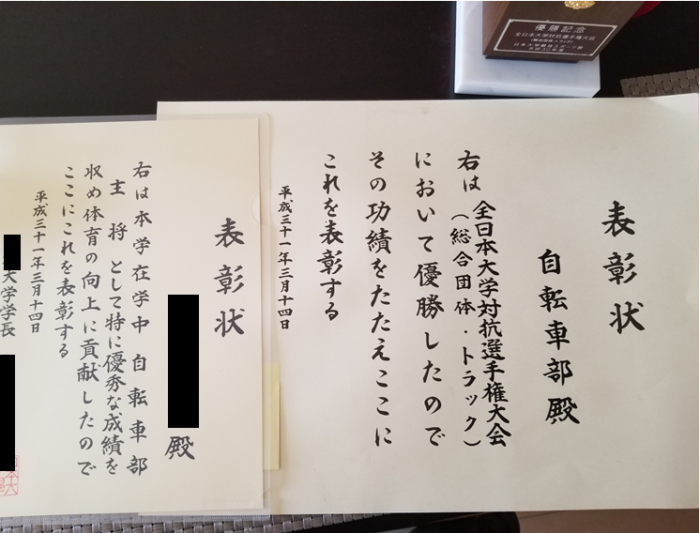 表彰状
自転車部殿
右は全日本大学対抗選手権大会
(総合団体・トラック)
において優勝したので
その功績をたたえここに
これを表彰する
平成三十一年三月十四日
表彰状
殿
右は本学在学中自転車部
主将として特に優秀な成績を
収め体育の向上に貢献したので
ここにこれを表彰する
平成三十一年三月十四日
大学学長
優勝記念
全日本大学対抗選手権大会